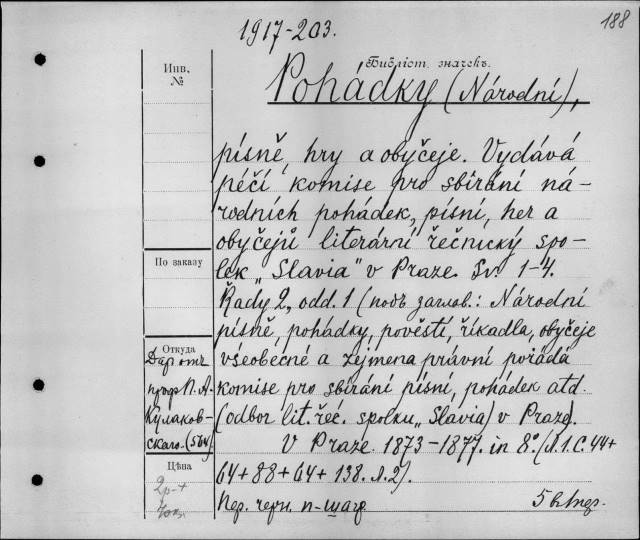 1917-203.
188
Библіот. значекъ.
Инв.
№
Pohádky (Národní),
písně, hry a obyčeje. Vydává
péčí komise pro sbírání ná-
rodních pohádek, písní, her a
obyčejů literární řečnický spo-
lek „Slavia" v Praze. Sv. 1-4.
Řady 2, odd. 1 (подъ заглав.: Národní
písně, pohádky, pověsti, říkadla, obyčeje
všeobecné a zejmena právní pořádá
komise pro sbírání písní, pohádek atd.
(odbor lit. řeč. spolku „Slavia) v Praze).
V Praze. 1873-1877. in 8°. (Л.1.С. 44+
64+88+64+138. Л.2).
Пер. черн. п-шагр.
По заказу
Откуда
Даръ отъ
проф. П. А.
Кулаков-
скаго. (564)
Цѣна
2р.+